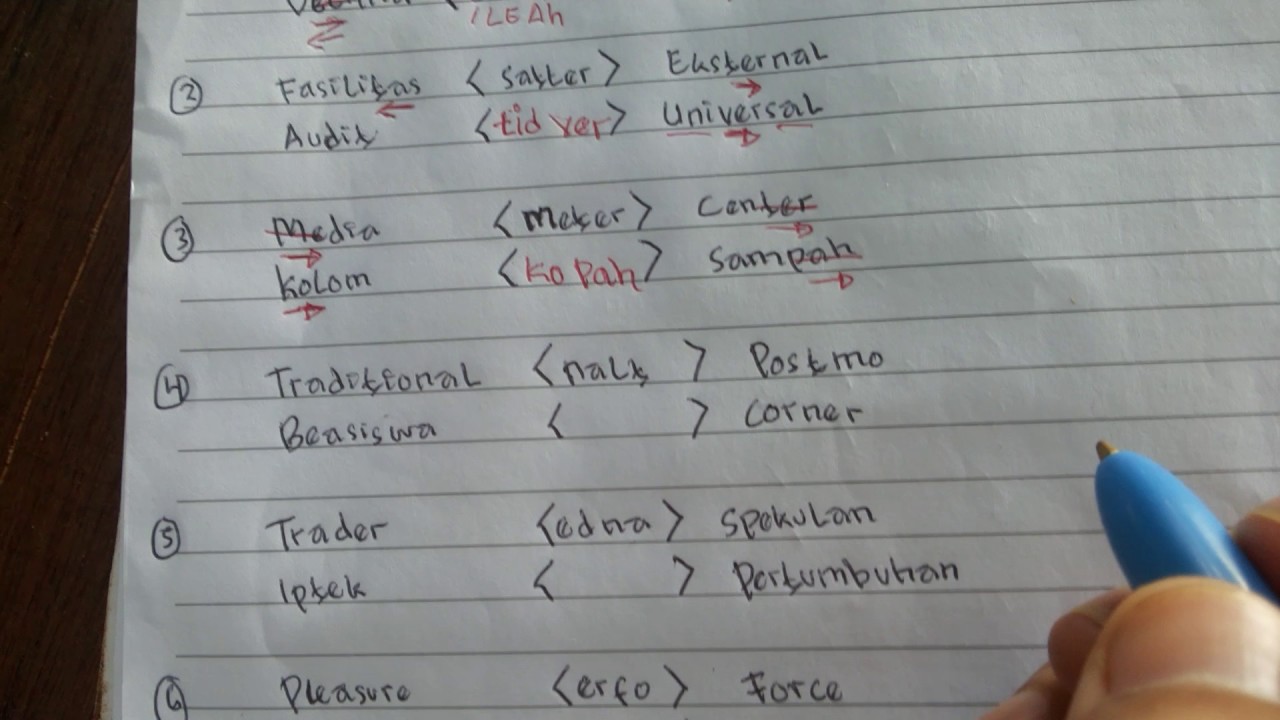 ILEAh
② Fasilitas < satter > Eksternal
Audit < tid ver > Universal
③ Media < meter > Center
Kolom < Ko Pah > Sampah
④ Traditional < nalt > Postmo
Beasiswa < > Corner
⑤ Trader < edna > Spekulan
Iptek < > Pertumbuhan
⑥ Pleasure < erfo > Force